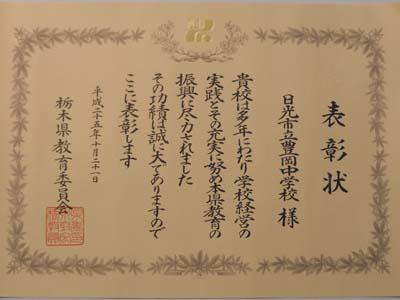 表彰状
日光市立豊岡中学校 様
貴校は多年にわたり学校経営の
実践とその充実に努め本県教育の
振興に尽力されました
その功績は誠に大でありますので
ここに表彰します
平成二十五年十月二十一日
栃木県教育委員会